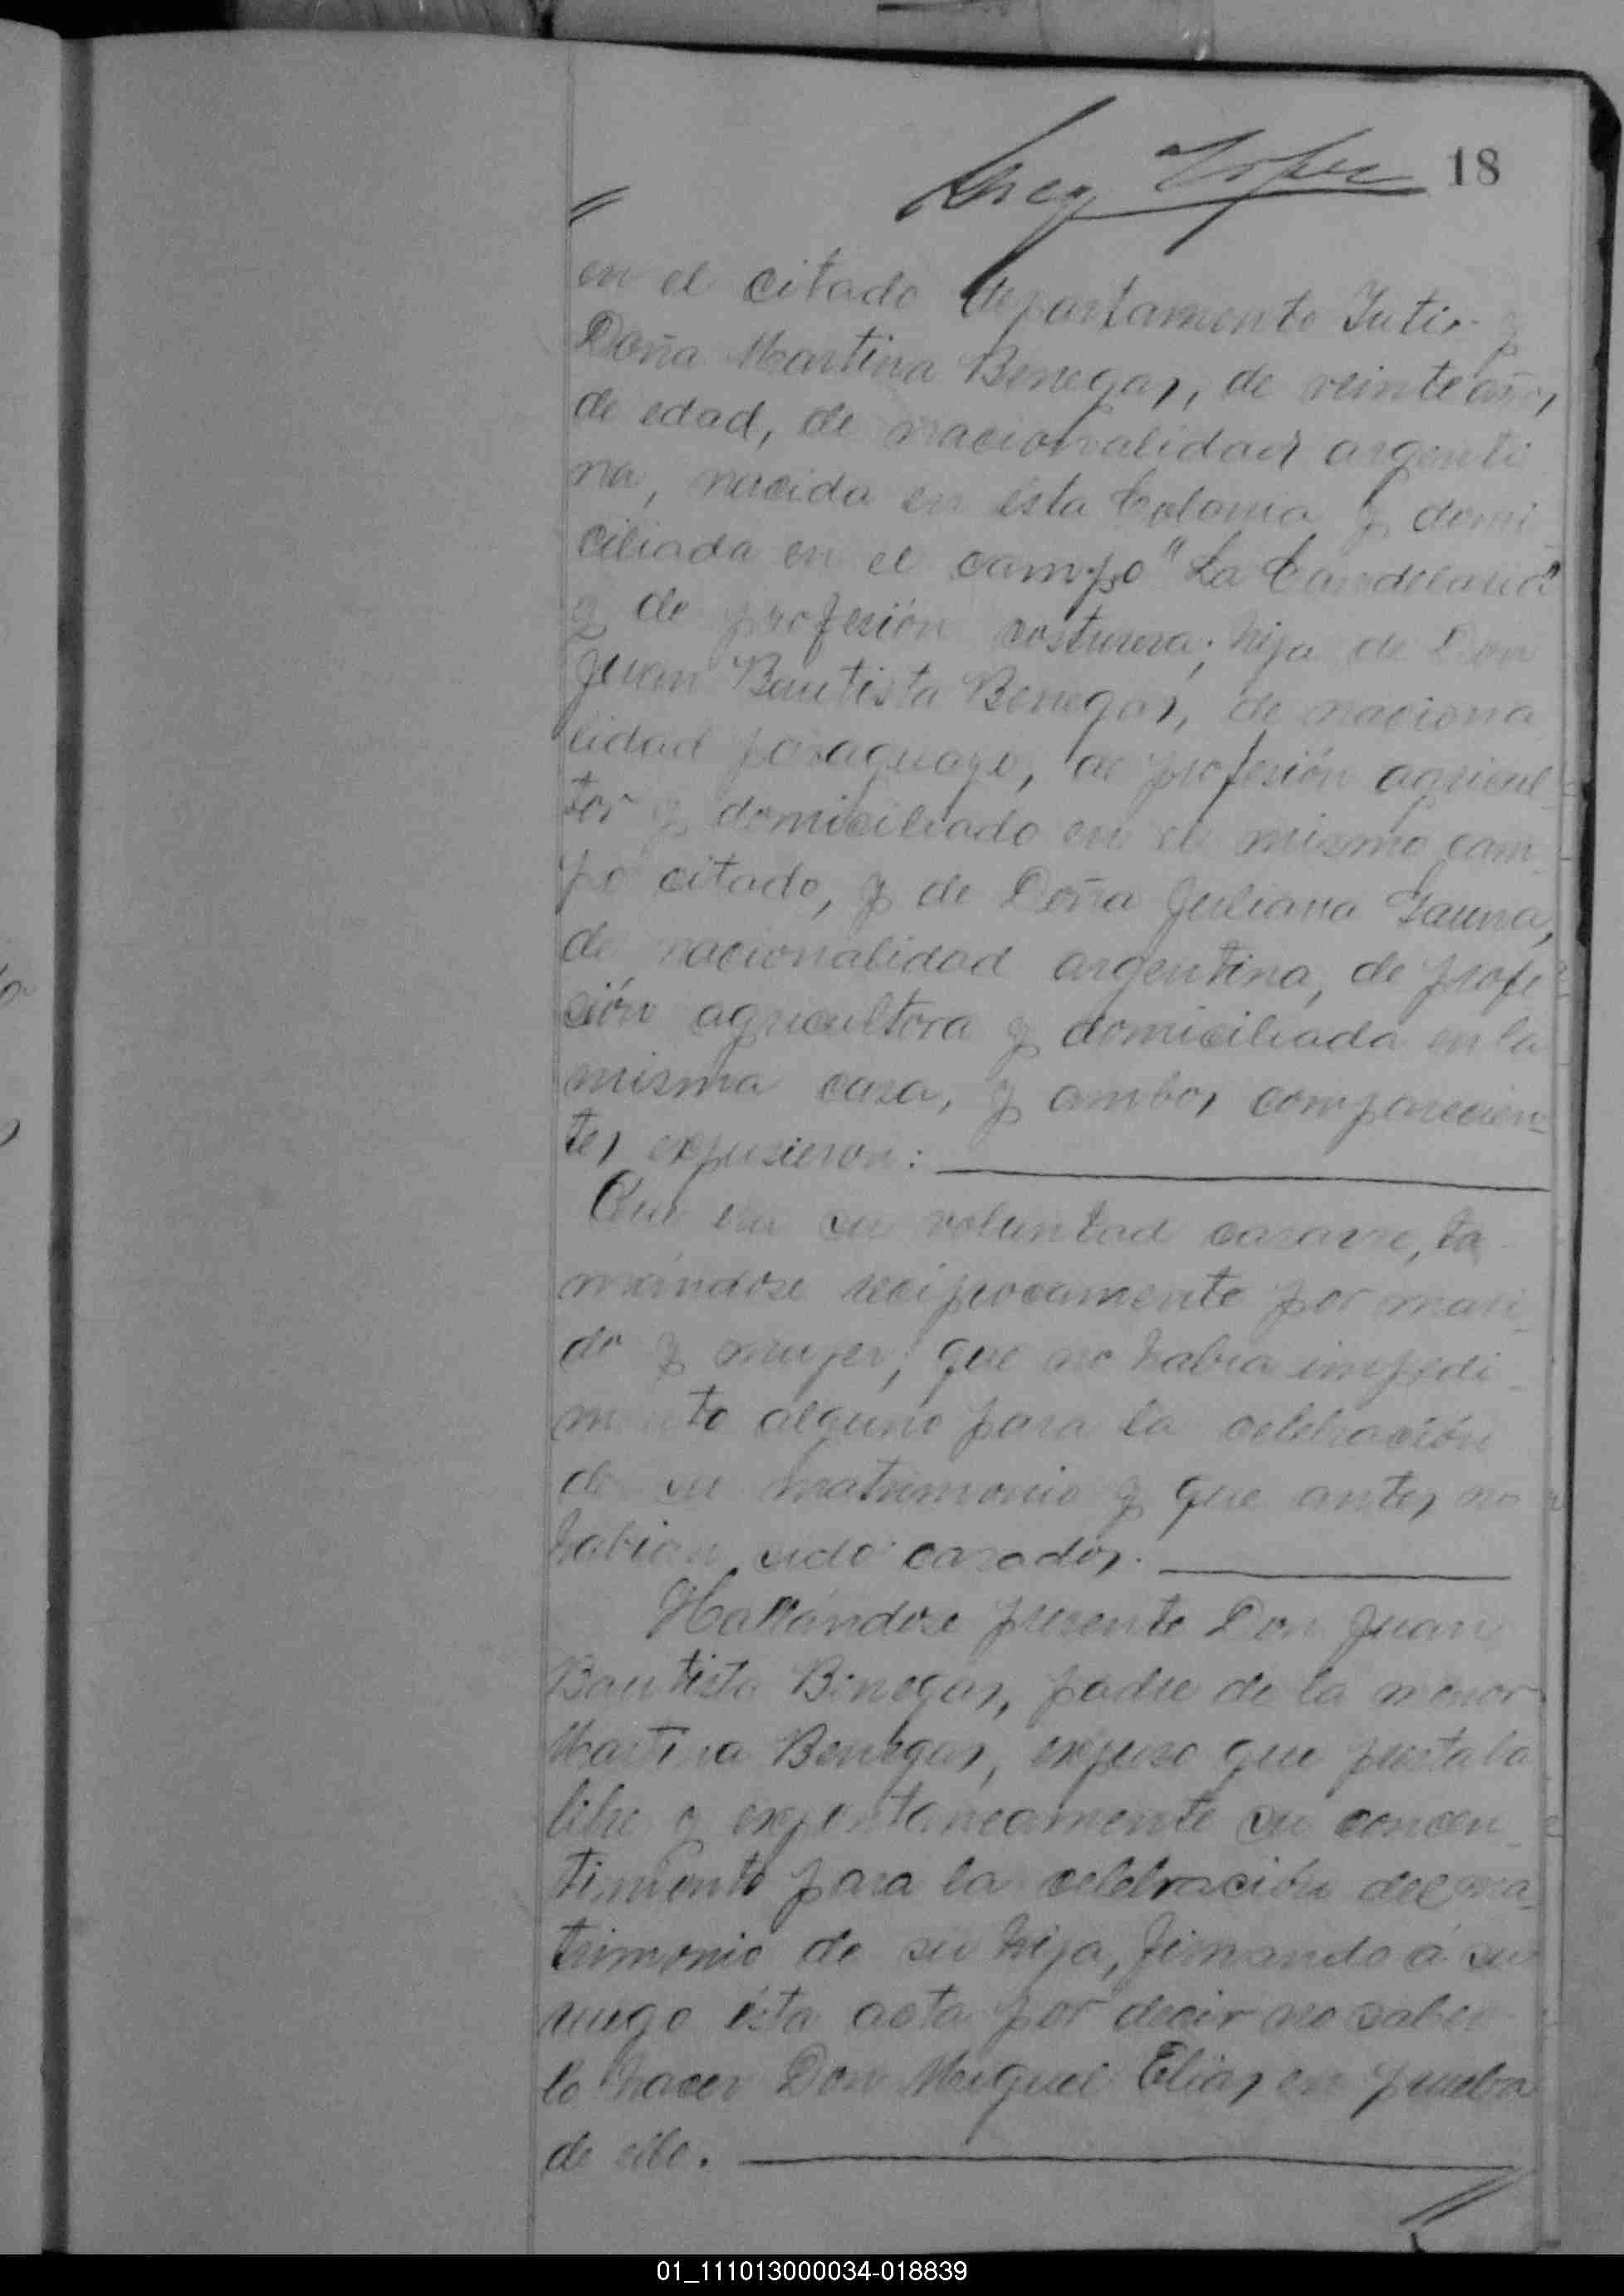 18
//
en el citado departamento Yuti y
Doña Martina Benegas, de veinte años
de edad, de nacionalidad argenti
na, nacida en ésta Colonia y domi
ciliada en el campo "La Candelaria"
y de profesión costurera; hija de Don
Juan Bautista Benegas, de naciona
lidad paraguayo, de profesión agricul
tor y domiciliado en el mismo cam
po citado, y de Doña Juliana Gauna,
de nacionalidad argentina, de profe
sión agricultora y domiciliada en la
misma casa, y ambos comparecien
tes expusieron:
Que era su voluntad casarse, to
mándose recíprocamente por mari
do y mujer; que no habia impedi
mento alguno para la celebración
de su matrimonio y que antes no
habian sido casados.
Hallándose presente Don Juan
Bautista Benegas, padre de la menor
Martina Benegas, expuso que prestaba
libre y expontaneamente su concen
timiento para la celebración del ma
trimonio de su hija, firmando á su
ruego ésta acta por decir no saber
lo hacer Don Miguel Elías en prueba
de ello.
//
01_111013000034-018839